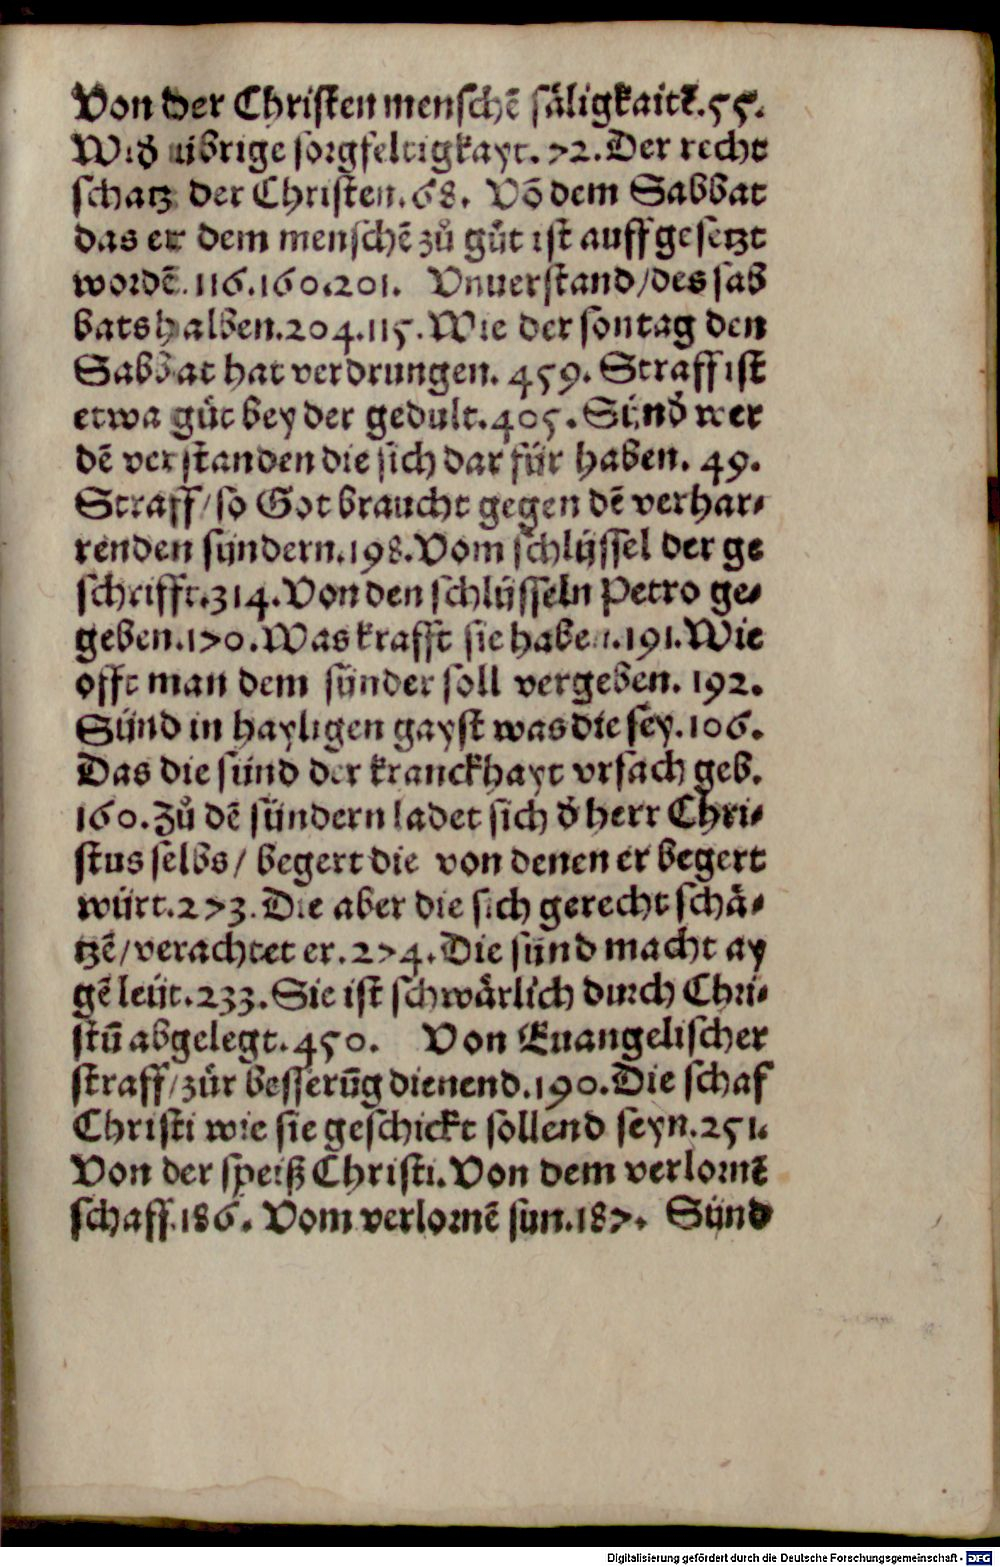 Von der Christen menschē säligkaitt.55.
Wid̄ übrige sorgfeltigkayt.72.Der recht
schatz der Christen.68. Vō dem Sabbat
das er dem menschē zů gůt ist auffgesetzt
wordē.116.160.201. Vnuerstand/des sab
bats halben.204.115.Wie der sontag den
Sabbat hat verdrungen. 459. Straff ist
etwa gůt bey der gedult.405. Sünd wer
dē verstanden die sich dar für haben. 49.
Straff/so Got braucht gegen dē verhar⸗
renden sündern.198.Vom schlüssel der ge
schrifft.314.Von den schlüsseln Petro ge⸗
geben.170.Was krafft sie haben.191.Wie
offt man dem sünder soll vergeben. 192.
Sünd in hayligen gayst was die sey.106.
Das die sünd der kranckhayt vrsach geb.
160.Zů dē sündern ladet sich d̄ herr Chri⸗
stus selbs/ begert die von denen er begert
würt.273.Die aber die sich gerecht schä⸗
tzē/verachtet er.274.Die sünd macht ay
gē leüt.233.Sie ist schwärlich durch Chri⸗
stū abgelegt.450. Von Euangelischer
straff/zůr besserūg dienend.190.Die schaf
Christi wie sie geschickt sollend seyn.251.
Von der speiß Christi.Von dem verlornē
schaff.186. Vom verlornē sun.187. Sünd
Digitalisierung gefördert durch die Deutsche Forschungsgemeinschaft - DFG